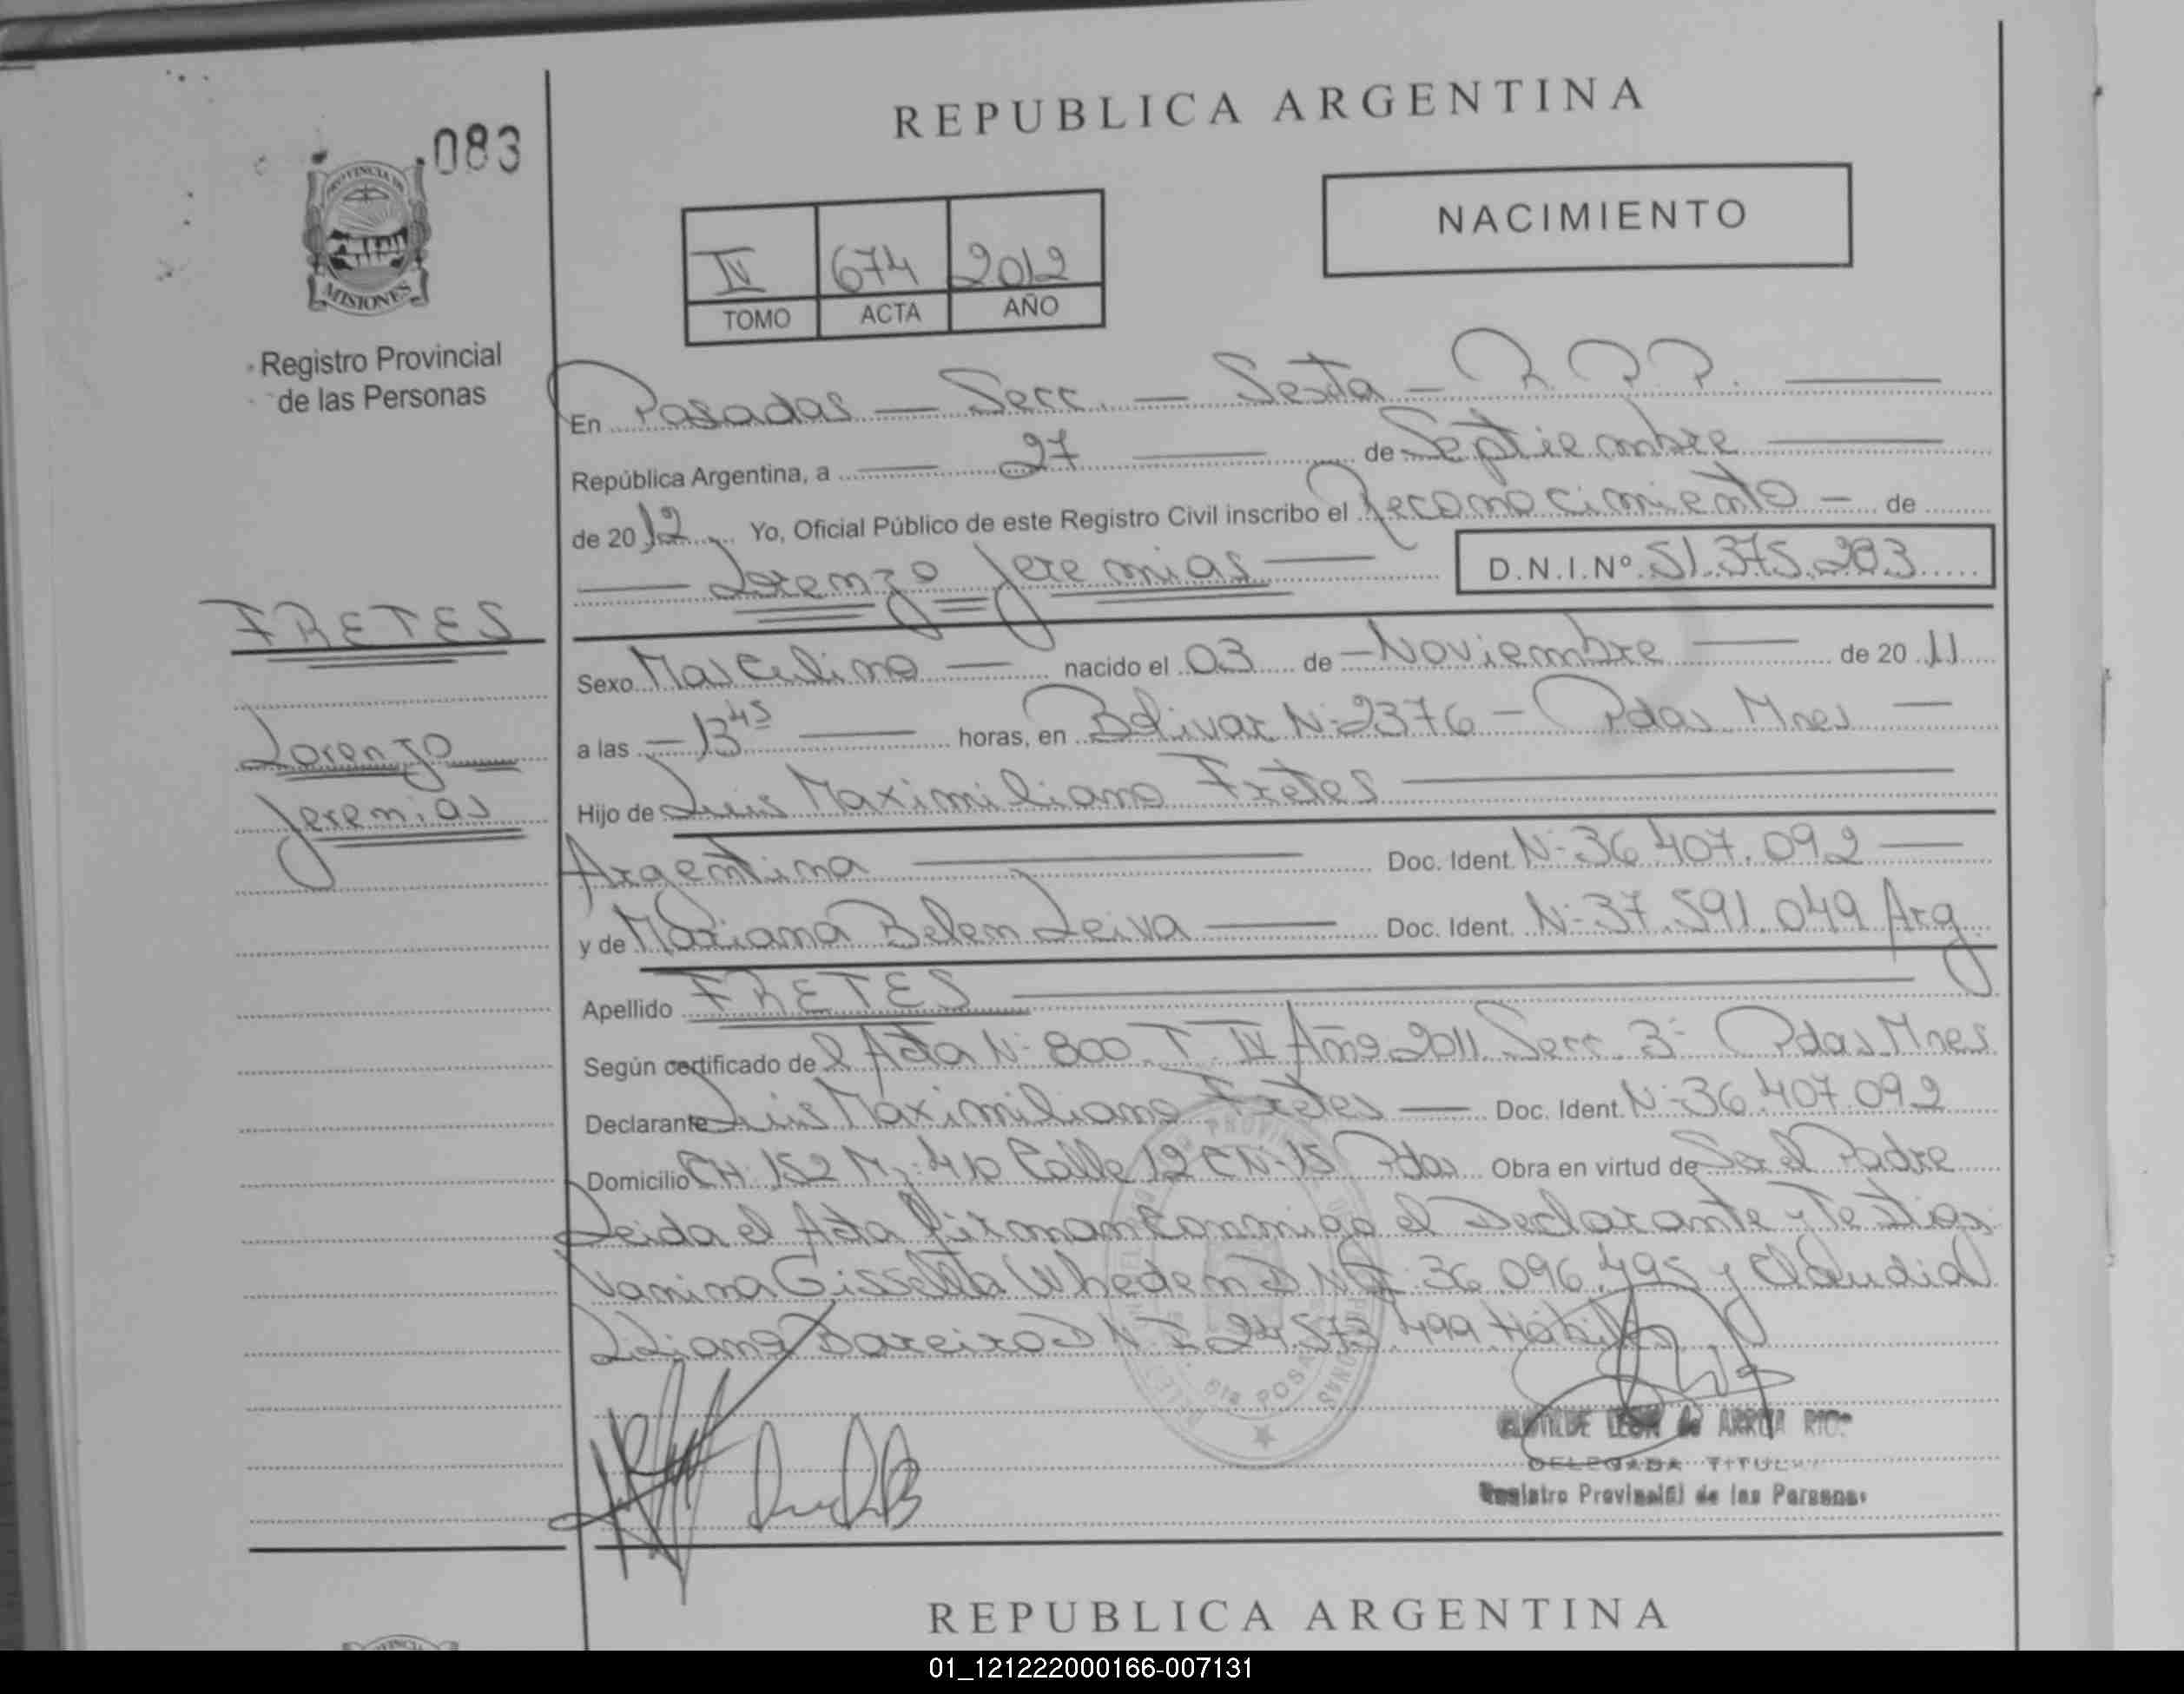 REPUBLICA ARGENTINA
083
PROVINCIA DE
MISIONES
Registro Provincial
de las Personas
NACIMIENTO
IV 674 2012
TOMO ACTA AÑO
En Posadas — Secc. — Sexta — R.P.P. —
República Argentina, a — 27 — de Septiembre —
de 2012. Yo, Oficial Público de este Registro Civil inscribo el Reconocimiento — de
— Lorenzo Jeremias — D.N.I.Nº 51.375.203
FRETES
Lorenzo
Jeremias
Sexo Masculino — nacido el 03 de Noviembre — de 2011
a las — 13 45 — horas, en Bolivar N: 2376 — Pdas Mnes —
Hijo de Luis Maximiliano Fretes —
Argentina — Doc. Ident. N: 36 407.092 —
y de Mariana Belen Leiva — Doc. Ident. N: 37.591.049 Arg
Apellido FRETES —
Según certificado del Acta N: 800 T. IV Año 2011 Secc. 3 Pdas Mnes
Declarante Luis Maximiliano Fretes — Doc. Ident. N: 36 407.092
Domicilio CH 152 M: 410 Calle 12 C N: 15 Pdas Obra en virtud de Ser el Padre
Leida el Acta firman conmigo el Declarante y Testigos
Vanina Gisseta Wheden D.N.I. 36.096.495 y Claudia
Liliana Bareiro D.N.I. 24.573.499 Habiles
LEON de ARRUA
DELEGADA TITULAR
Registro Provincial de las Personas
REPUBLICA ARGENTINA
01_121222000166-007131